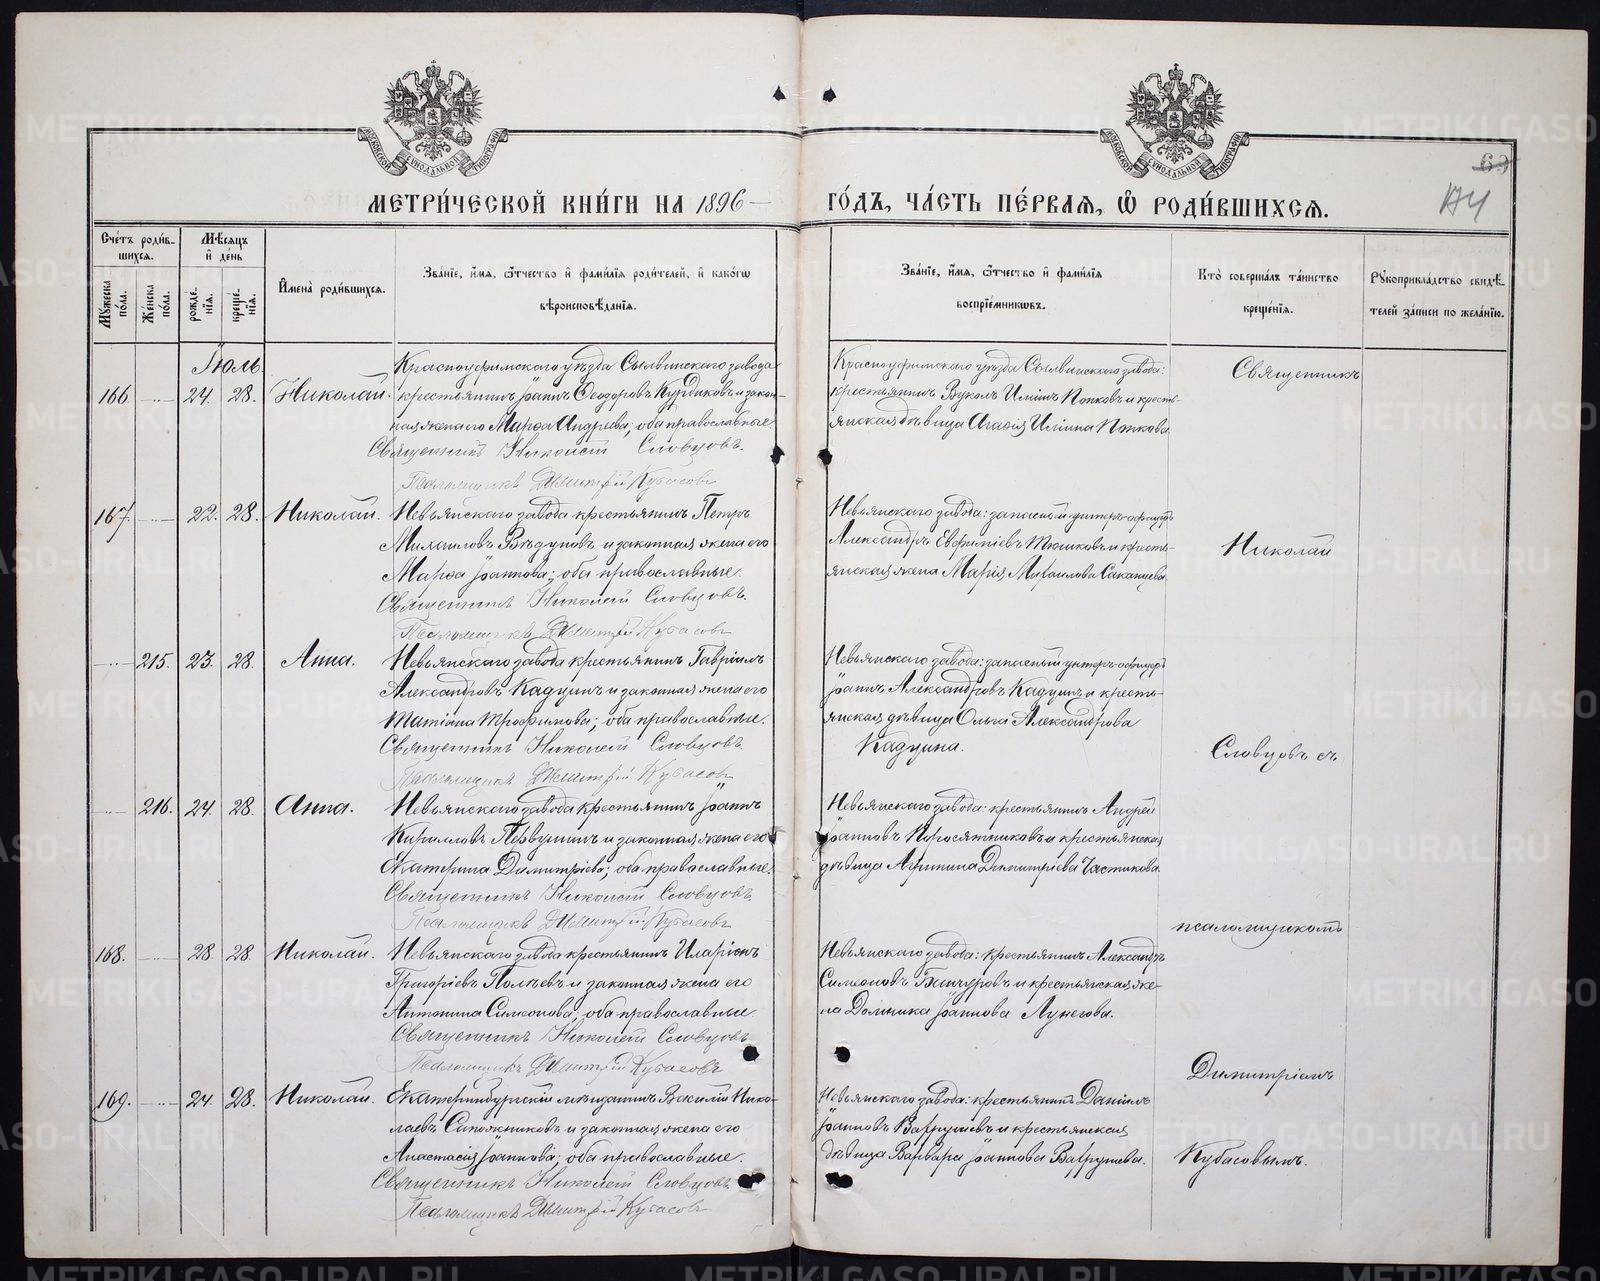 МЕТРИ́ЧЕСКОЙ КНИ́ГИ НА 1896 ГО́ДЪ, ЧА́СТЬ ПЕ́РВАЯ, Ѽ РОДИ́ВШИХСЯ.
69
174
Сче́тъ роди́вшихся.
Му́жеска по́ла.
Же́нска по́ла.
Мѣ́сяцъ и҆ де́нь
рожде́нїя.
креще́нїя.
И҆мена̀ роди́вшихся.
Зва́нїе, и҆́мя, ѻ҆́тчество и҆ фами́лїя роди́телей, и҆ како́гѡ
вѣроисповѣ́данїя.
Зва́нїе, и҆́мя, ѻ҆́тчество и҆ фами́лїя
воспрїе́мниковъ.
Кто̀ соверша́лъ та́инство
креще́нїя.
Рꙋкоприкла́дство свидѣ́-
телей за́писи по жела́нїю.
Іюль
166. 24. 28. Николай.
Красноуфимскаго уѣзда Сылвинскаго завода
крестьянинъ Іоаннъ Ѳеодоровъ Курдюковъ и закон-
ная жена его Марѳа Андреева; оба православные.
Священникъ Николай Словцовъ.
Псаломщикъ Димитрій Кубасовъ
Красноуфимскаго уѣзда Сылвинскаго завода:
крестьянинъ Вуколъ Илiинъ Попковъ и кресть-
янская дѣвица Агаѳiя Илiина Попкова.
167. 22. 28. Николай.
Невьянскаго завода крестьянинъ Петръ
Михаиловъ Вѣдуновъ и законная жена его
Марѳа Іоаннова; оба православные.
Священникъ Николай Словцовъ.
Псаломщикъ Димитрій Кубасовъ
Невьянскаго завода: запасный унтеръ-офицеръ
Александръ Евфиміевъ Тюшковъ и кресть-
янская жена Марія Михаилова Саканцева.
215. 23. 28. Анна.
Невьянскаго завода крестьянинъ Гавріилъ
Александровъ Кадцинъ и законная жена его
Татіана Трофимова; оба православные.
Священникъ Николай Словцовъ.
Псаломщикъ Димитрій Кубасовъ
Невьянскаго завода: запасный унтеръ-офицеръ
Іоаннъ Александровъ Кадцинъ и кресть-
янская дѣвица Ольга Александрова
Кадцина.
216. 24. 28. Анна.
Невьянскаго завода крестьянинъ Іоаннъ
Кирилловъ Первушинъ и законная жена его
Екатерина Димитріева; оба православные.
Священникъ Николай Словцовъ.
Псаломщикъ Димитрій Кубасовъ
Невьянскаго завода: крестьянинъ Андрей
Іоанновъ Поросятниковъ и крестьянская
дѣвица Агриппина Димитріева Частикова.
168. 28. 28. Николай.
Невьянскаго завода крестьянинъ Иларіонъ
Григоріевъ Полѣевъ и законная жена его
Антонина Симеонова; оба православные.
Священникъ Николай Словцовъ
Псаломщикъ Димитрій Кубасовъ
Невьянскаго завода: крестьянинъ Александръ
Симеоновъ Бичуровъ и крестьянская же-
на Домника Іоаннова Лунегова.
169. 24. 28. Николай.
Екатеринбургскій мѣщанинъ Василій Нико-
лаевъ Сапожниковъ и законная жена его
Анастасія Іоаннова; оба православные.
Священникъ Николай Словцовъ.
Псаломщикъ Димитрій Кубасовъ
Невьянскаго завода: крестьянинъ Даніилъ
Іоанновъ Вахрушевъ и крестьянская
дѣвица Варвара Іоаннова Вахрушева.
Священникъ
Николай
Словцовъ съ
псаломщикомъ
Димитріемъ
Кубасовымъ.
METRIKI.GASO-URAL.RU